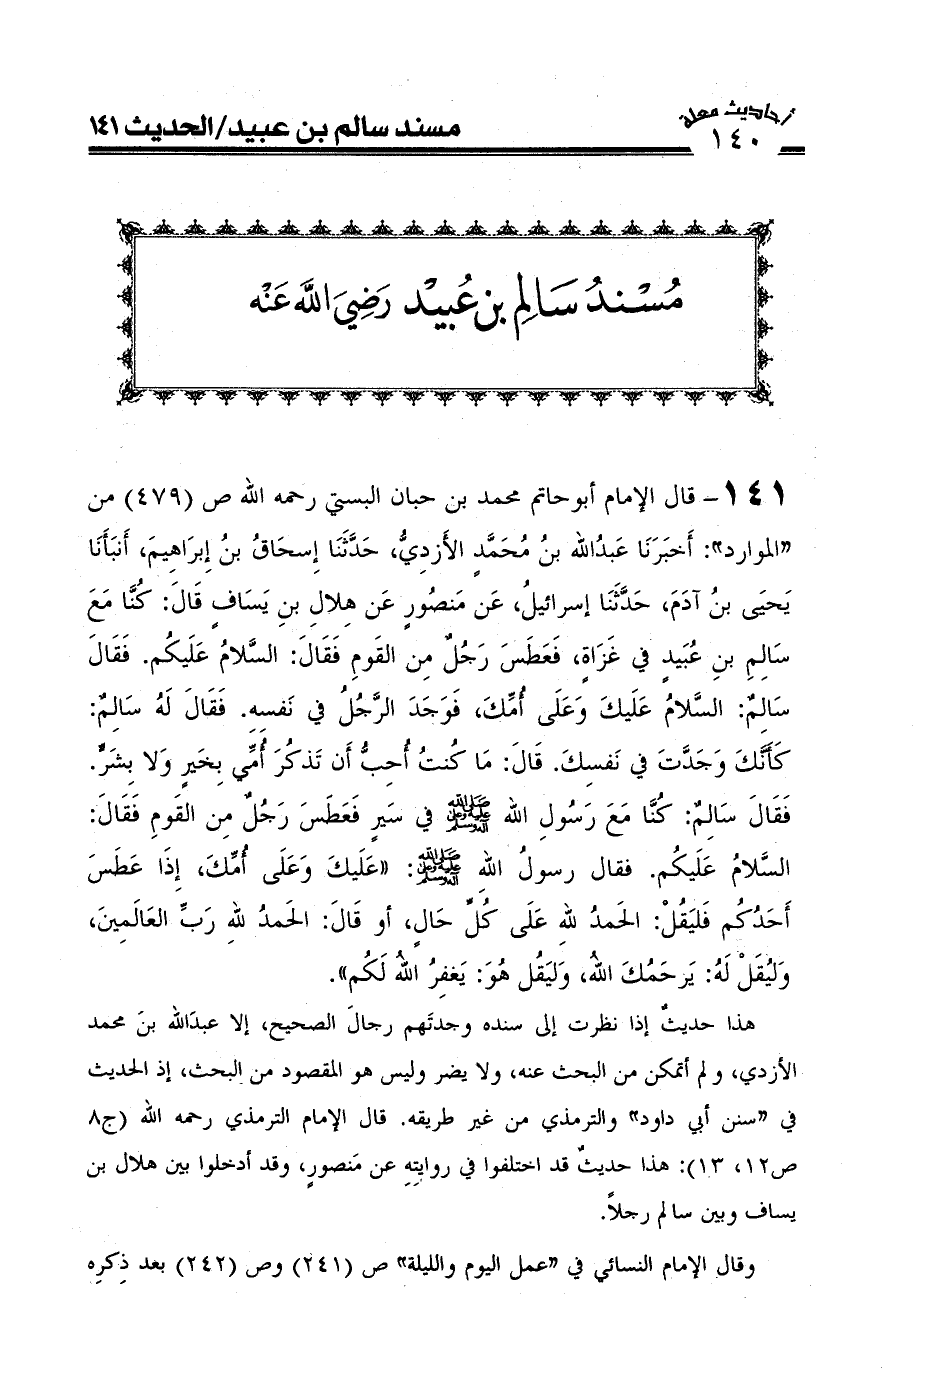 أحاديث معلة
١٤٠
مسند سالم بن عبيد/الحديث ١٤١
مُسْنَدُ سَالِمِ بنِ عُبَيْدٍ رَضِيَ اللَّهُ عَنْه
١٤١- قال الإمام أبوحاتم محمد بن حبان البستي رحمه الله ص (٤٧٩) من
«الموارد»: أَخبَرَنَا عَبدُالله بنُ مُحَمَّدٍ الأَزدِيُّ، حَدَّثَنَا إِسحَاقُ بنُ إِبرَاهِيمَ، أَنبَأَنَا
يَحيَى بنُ آدَمَ، حَدَّثَنَا إسرائيلُ، عَن مَنصُورٍ عَن هِلالِ بنِ يَسَافٍ قَالَ: كُنَّا مَعَ
سَالِمِ بنِ عُبَيدٍ في غَزَاةٍ، فَعَطَسَ رَجُلٌ مِن القَومِ فَقَالَ: السَّلامُ عَلَيكُم. فَقَالَ
سَالِمٌ: السَّلامُ عَلَيكَ وَعَلَى أُمِّكَ، فَوَجَدَ الرَّجُلُ في نَفسِهِ. فَقَالَ لَهُ سَالِمٌ:
كَأَنَّكَ وَجَدَّتَ في نَفسِكَ. قَالَ: مَا كُنتُ أُحِبُّ أَن تَذكُرَ أُمِّي بِخَيرٍ وَلا بِشَرٍّ.
فَقَالَ سَالِمٌ: كُنَّا مَعَ رَسُولِ الله ﷺ في سَيرٍ فَعَطَسَ رَجُلٌ مِن القَومِ فَقَالَ:
السَّلامُ عَلَيكُم. فقال رسولُ اللهِ ﷺ: «عَلَيكَ وَعَلَى أُمِّكَ، إِذَا عَطَسَ
أَحَدُكُم فَليَقُلْ: الحَمدُ للهِ عَلَى كُلِّ حَالٍ، أو قَالَ: الحَمدُ للهِ رَبِّ العَالَمِينَ،
وَليُقَلْ لَهُ: يَرحَمُكَ اللهُ، وَليَقُل هُوَ: يَغفِرُ اللهُ لَكُم».
هذا حديثٌ إذا نظرت إلى سنده وجدتَهم رجالَ الصحيح، إلا عبدَالله بنَ محمد
الأزدي، ولم أتمكن من البحث عنه، ولا يضر وليس هو المقصود من البحث، إذ الحديث
في «سنن أبي داود» والترمذي من غير طريقه. قال الإمام الترمذي رحمه الله (ج٨
ص١٢، ١٣): هذا حديثٌ قد اختلفوا في روايتِهِ عن مَنصورٍ، وقد أدخلوا بين هلال بن
يساف وبين سالم رجلاً.
وقال الإمام النسائي في «عمل اليوم والليلة» ص (٢٤١) وص (٢٤٢) بعد ذِكرِهِ